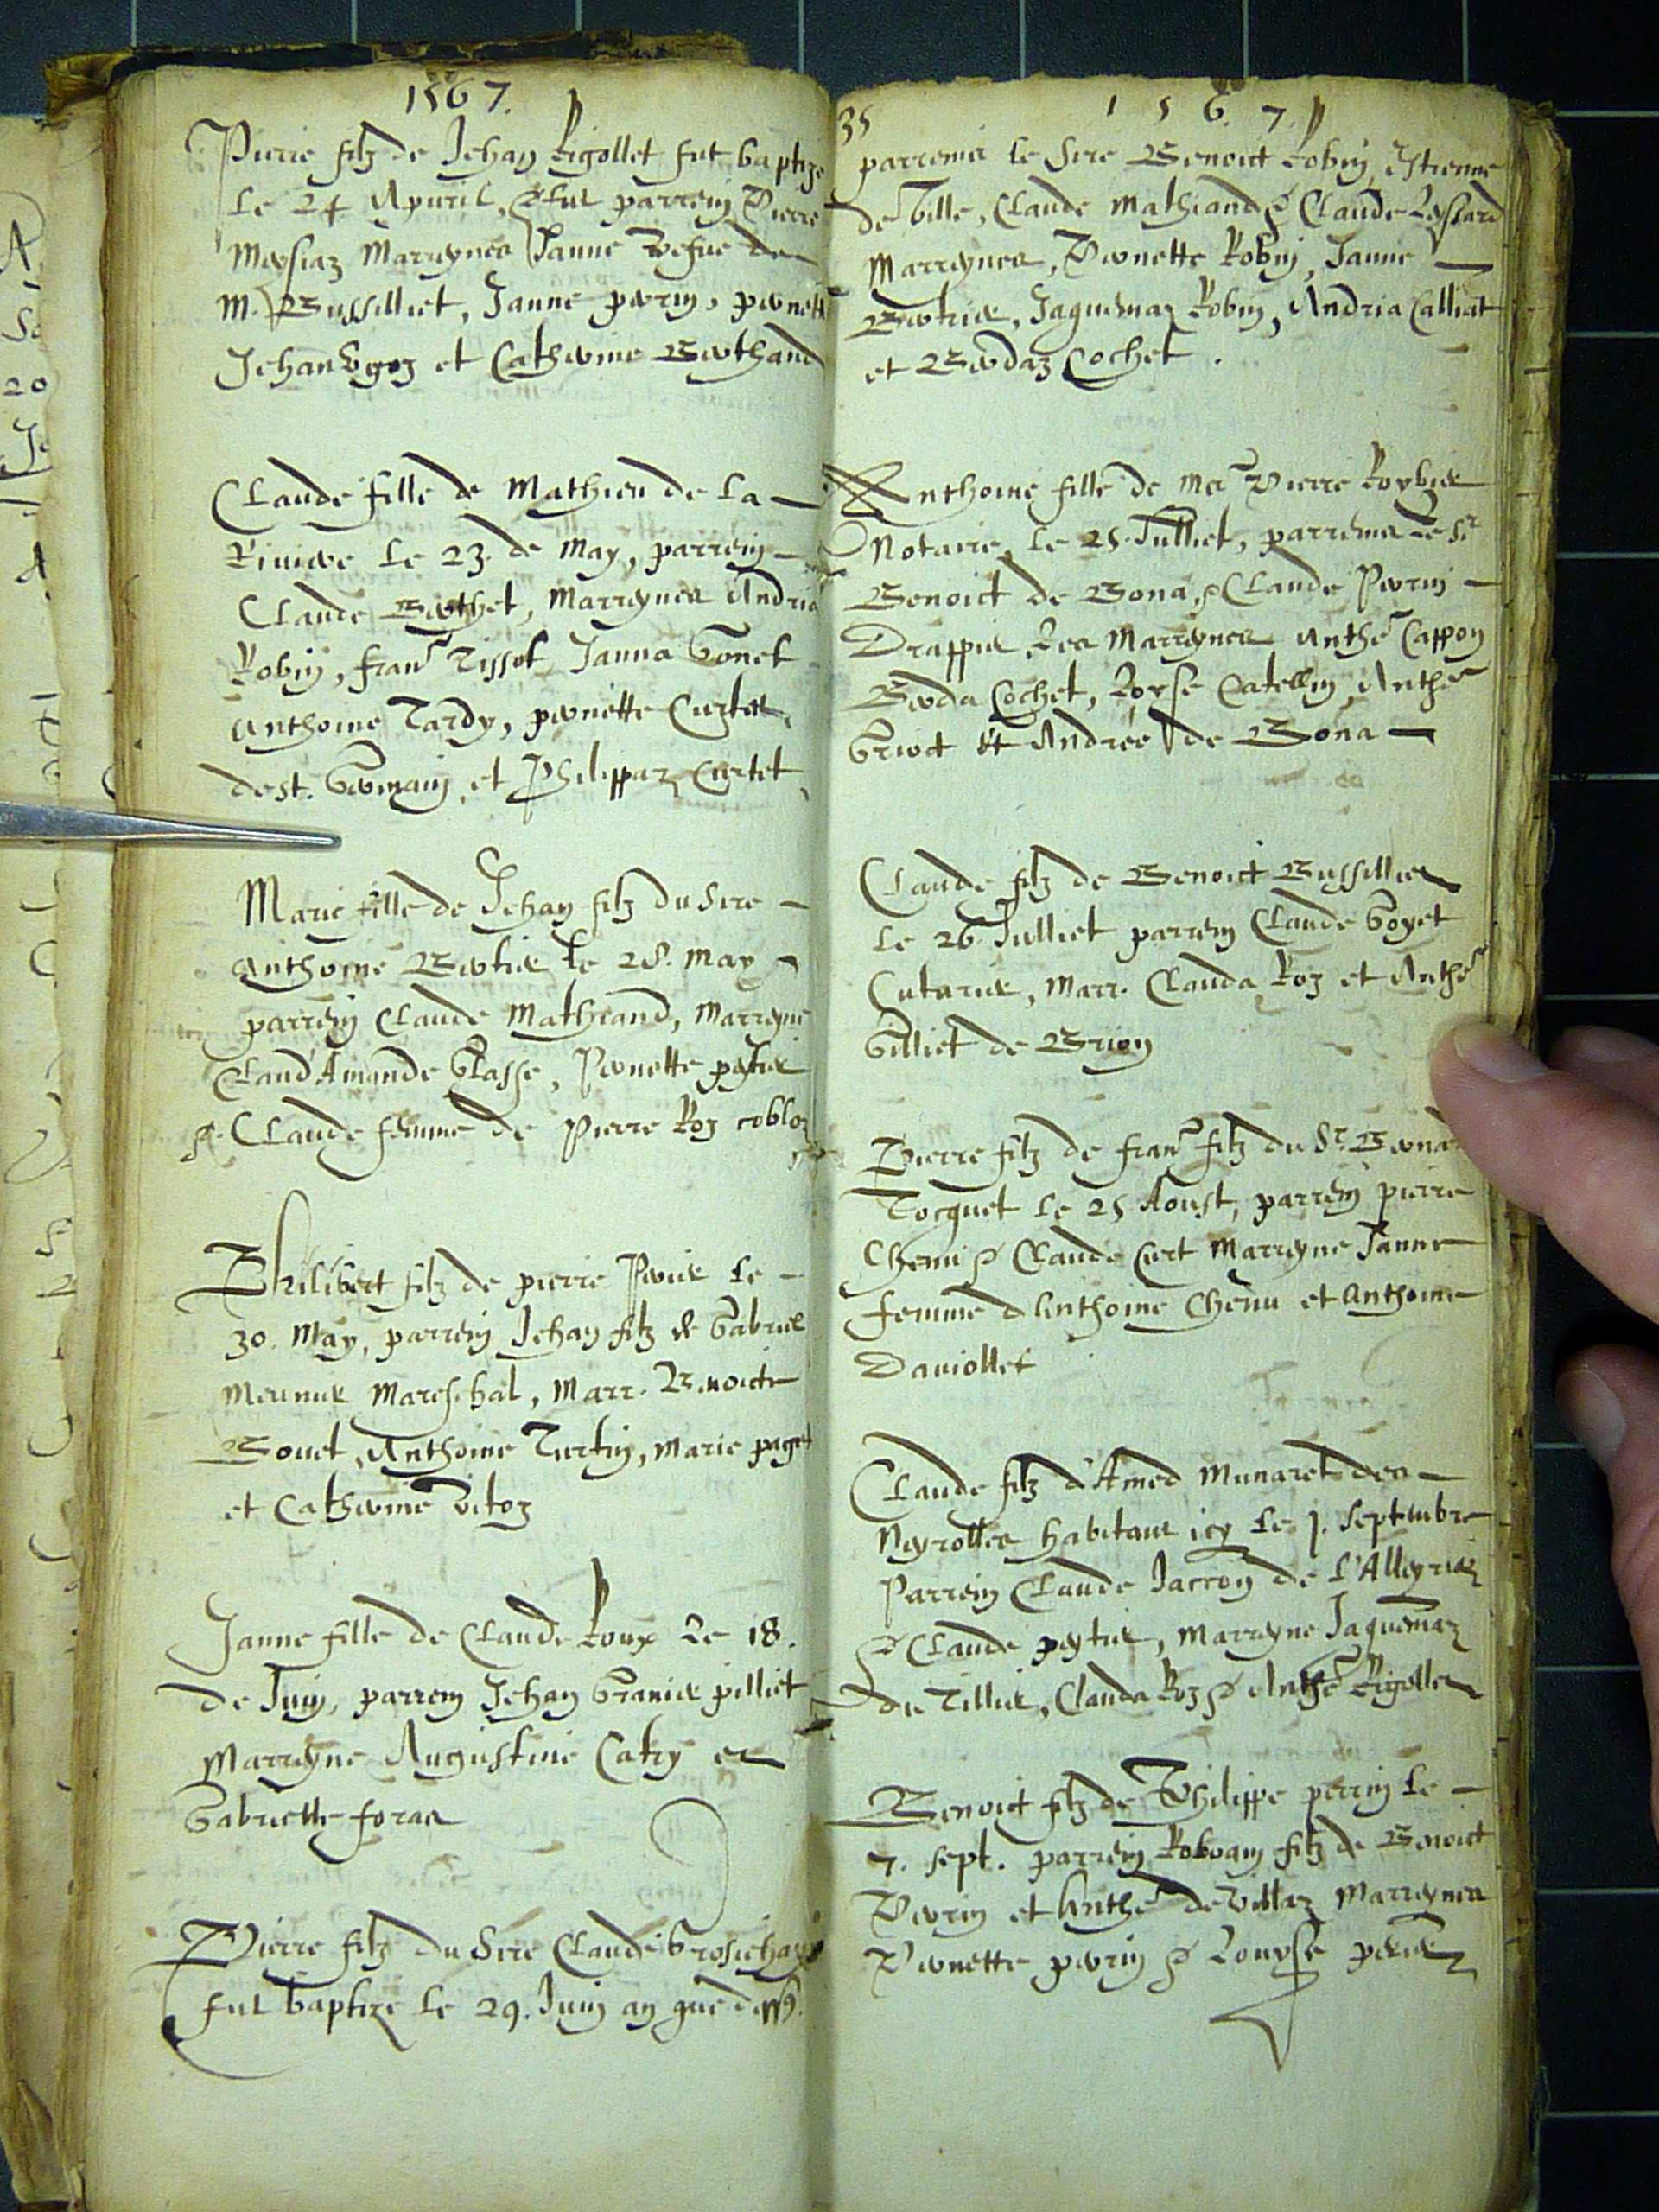 1567.
Pierre filz de Jehan Rigollet fut baptize
le 24 Apuril, & fut parrein Pierre
Meysiaz Marreynes Janne vefue de
M. Bussilliet, Janne perrin, pernette
Jehan et Catherine Berthand
Claude fille de Mathieu de la
Riuiere le 23. de May, parrein
Claude Berthet, Marreynes Andria
Robin, fran Tissot, Janna Gonet
Anthoine Tardy, pernette Curtet
de st. Germain, et Philippaz Curtet
Marie fille de Jehan filz du Sire
Anthoine Bertier le 28. May
parrein Claude Mathiand, Marreyne
Claud'Amande Glasse, Pernette peytier
& Claude femme de Pierre Roz
Philibert filz de pierre le
30. May, parrein Jehan filz de Gabriel
Meunier Mareschal, Marr. Benoicte
Bouet, Anthoine Turtin, Marie paget
et Catherine Vitoz
Janne fille de Claude Roux le 18.
de Juin, parrein Jehan Granier pilliet
Marreyne Augustine Catry et
Gabrielle foras
Pierre filz du Sire Claude Grosjehan
fut baptize le 29. Juin an que dess9.
35
1 5 6. 7.
parreins le Sire Benoict Robin, Estienne
de Ville, Claude Mathiand & Claude
Marreynes, Pernette Robin, Janne
Bertier, Jaquemaz Robin, Andria Calliat
et Berdaz Cochet.
Anthoine fille de Me Pierre Roybier
Notaire, le 25. Julliet, parreins le Sr
Benoict de Bona, & Claude Perrin
Drappier les Marreynes Anthe Cappon
Berda Cochet, Loyse Catellin, Anthe
et Andrée de Bona
Claude filz de Benoict Bussilliet
le 26. Julliet parrein Claude Goyet
Cuturier, Marr. Clauda Roz et Anthe
Gilliet de Brion
Pierre filz de fran filz du Sr. Bernard
Tocquet le 25 Aoust, parrein pierre
Chenu & Claude Curt Marreyne Janne
femme d'Anthoine Chenu et Anthoine
Dauiollet
Claude filz d'Amed Munaret des
Neyrolles habitant icy le 1. Septembre
Parrein Claude Jacron de l'Alleyriaz
& Claude peytier, Marreyne Jaquemaz
du Tillier, Clauda Roz & Anthe Rigollet
Benoict filz de Philippe perrin le
7. Sept. parrein Roboam filz de Benoict
Perrin et Anthe de Villaz Marreynes
Pernette perrin & Louyse